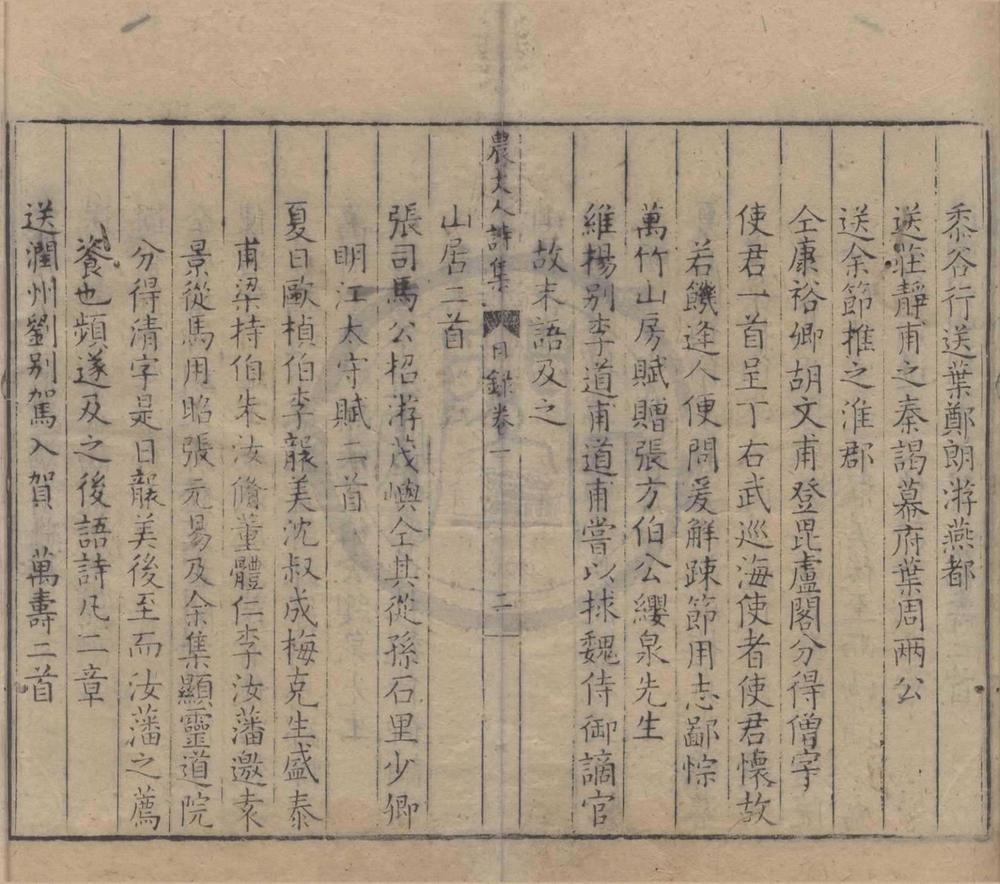 黍谷行送葉鄭朗游燕都
送莊靜甫之秦謁幕府葉周兩公
送余節推之淮郡
仝康裕卿胡文甫登毘盧閣分得僧字
使君一首呈丁右武巡海使者使君懷故
若饑逢人便問爰解踈節用志鄙悰
萬竹山房賦贈張方伯公纓泉先生
維楊别李道甫道甫嘗以捄魏侍御謫官
故末語及之
農丈人詩集 目錄卷一 二
山居二首
張司馬公招游茂嶼仝其從孫石里少卿
明江太守賦二首
夏日歐楨伯李龍美沈叔成梅克生盛泰
甫梁持伯朱汝脩董體仁李汝藩邀袁
景從馬用昭張元易及余集顯靈道院
分得清字是日龍美後至而汝藩之薦
餈也頻遂及之後語詩凡二章
送潤州劉别駕入賀 萬壽二首